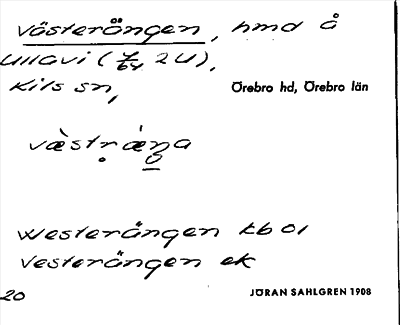 Västerängen, hmd å
Ullavi (7/64 2U),
Kils sn,
Örebro hd, Örebro län
Westerängen tb 01
Vesterängen ek
20
JÖRAN SAHLGREN 1908